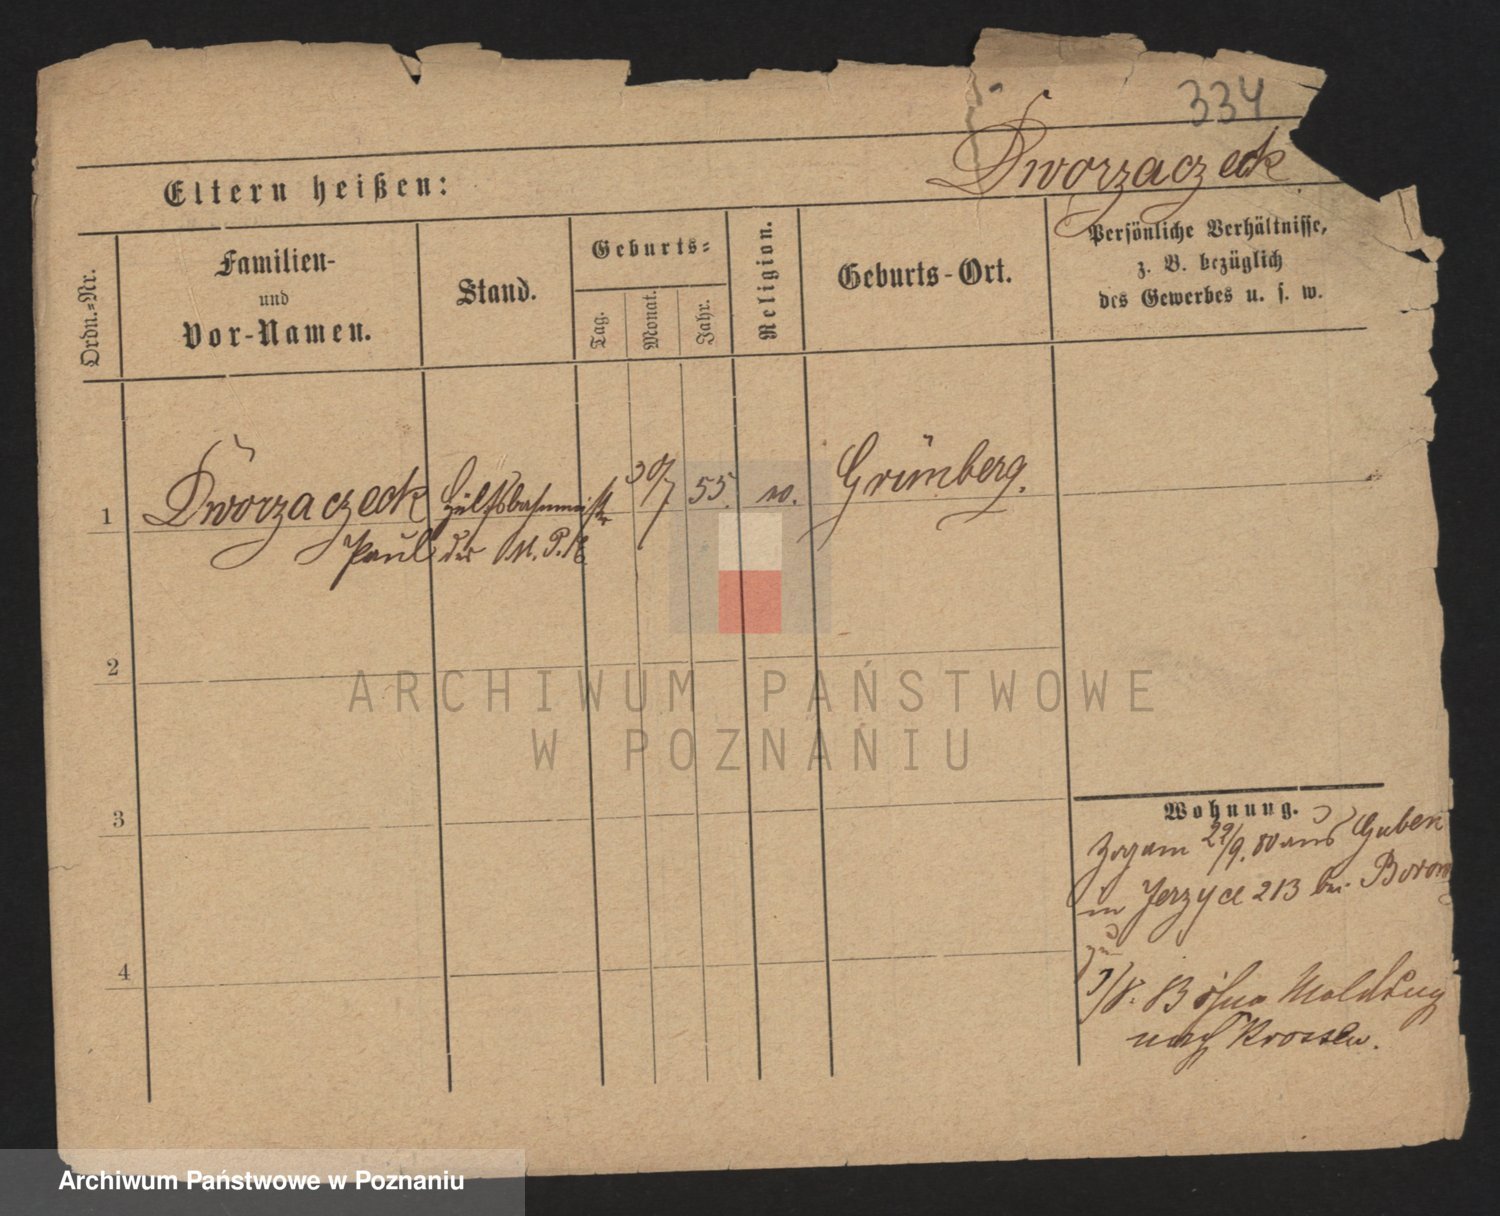 334
Dworzaczeck
Eltern heißen:
Ordn.=Nr.
Familien-
und
Vor-Namen.
Stand.
Geburts=
Tag.
Monat.
Jahr.
Religion.
Geburts-Ort.
Persönliche Verhältnisse,
z. B. bezüglich
des Gewerbes u. s. w.
1
Dworzaczeck
Paul
Hülfsbahnmeister
der M. P. E
30/7
55.
Grünberg.
2
3
4
Wohnung.
Zog am 29/9. 80 aus Guben
in Jerzyce 213 bei
/8. 83 ohne Meldung
nach Krossen.
ARCHIWUM PAŃSTWOWE
W POZNANIU
Archiwum Państwowe w Poznaniu